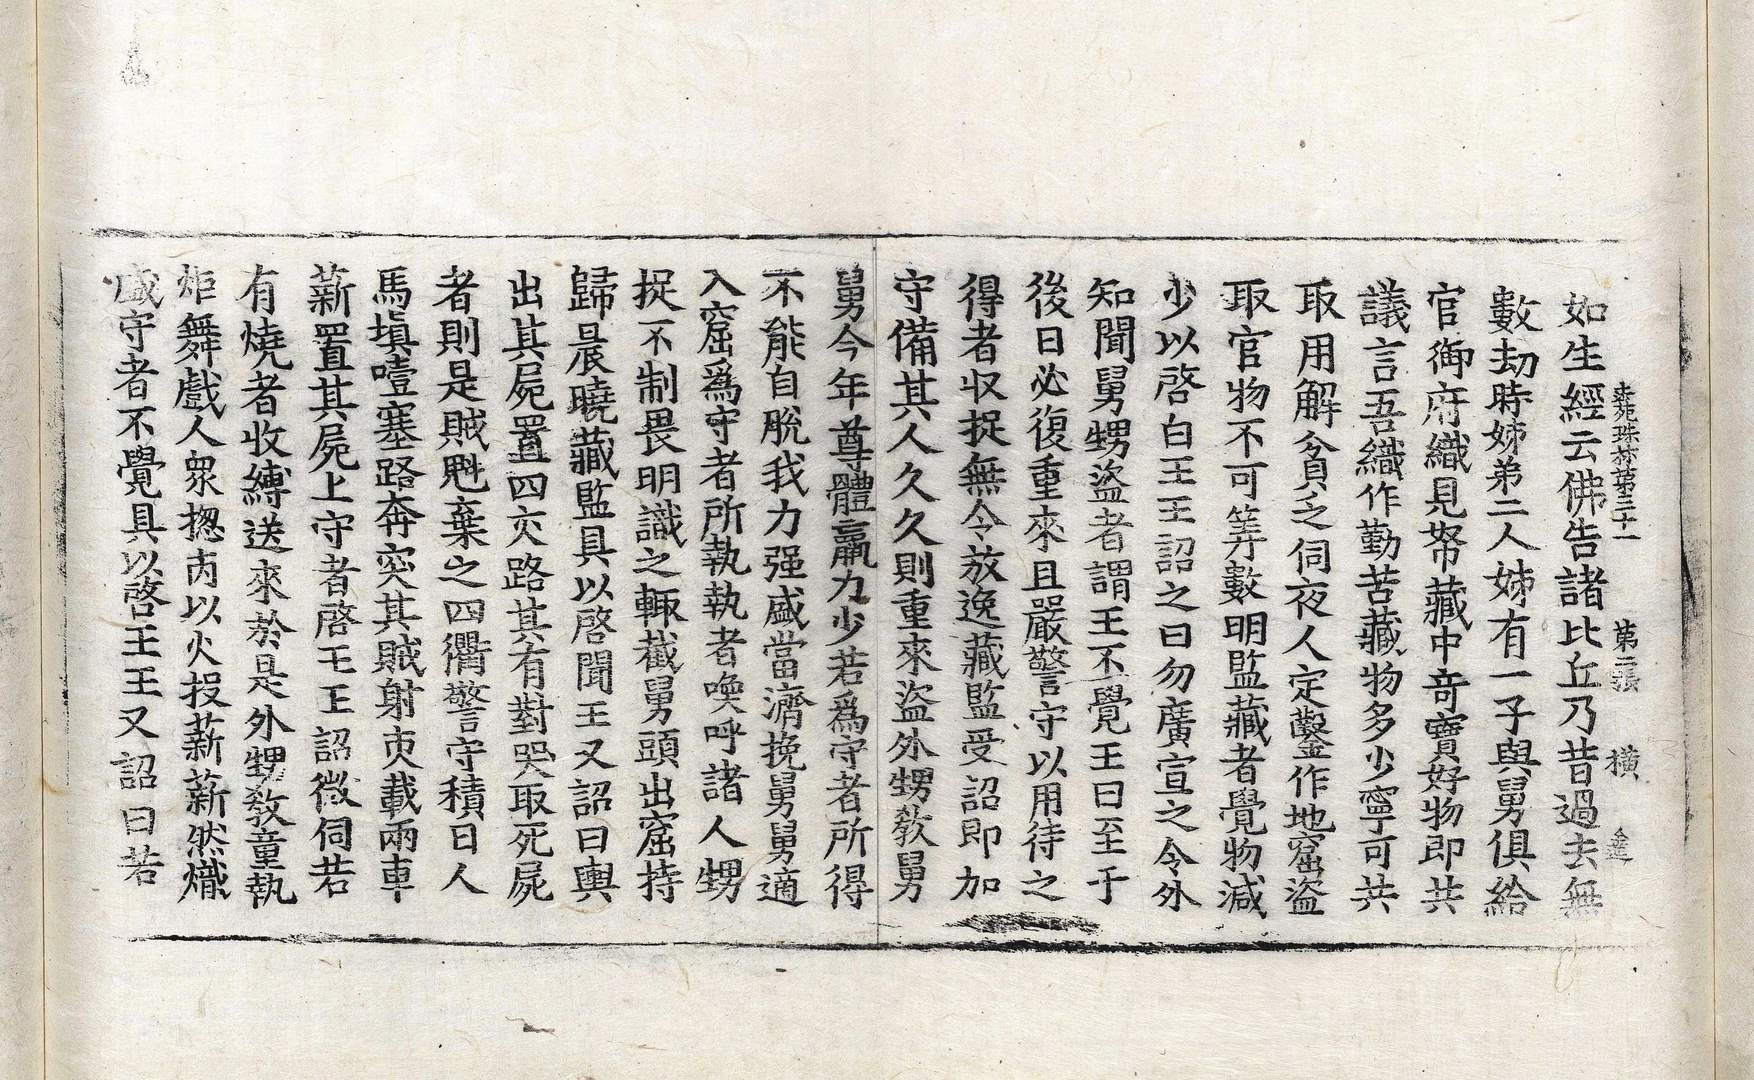 珠林第三十一　第二張　橫
如生經云佛告諸比丘乃昔過去無
數劫時姊弟二人姊有一子與舅俱給
官御府織見帑藏中奇寶好物即共
議言吾織作勤苦藏物多少寧可共
取用解貧乏伺夜人定鑿作地窟盜
取官物不可筭數明監藏者覺物減
少以啓白王王詔之曰勿廣宣之令外
知聞舅甥盜者謂王不覺王曰至于
後日必復重來且嚴警守以用待之
得者收捉無令放逸藏監受詔即加
守備其人久久則重來盜外甥教舅
舅今年尊體羸力少若爲守者所得
不能自脫我力强盛當濟挽舅舅適
入窟爲守者所執執者喚呼諸人甥
捉不制畏明識之輙截舅頭出窟持
歸晨曉藏監具以啓聞王又詔曰輿
出其屍置四交路其有對哭取死屍
者則是賊魁棄之四衢警守積日人
馬塡噎塞路奔突其賊射夾載兩車
薪置其屍上守者啓王王詔微伺若
有燒者收縛送來於是外甥教童執
炬舞戲人衆揔䦕以火投薪薪然熾
盛守者不覺具以啓王王又詔曰若